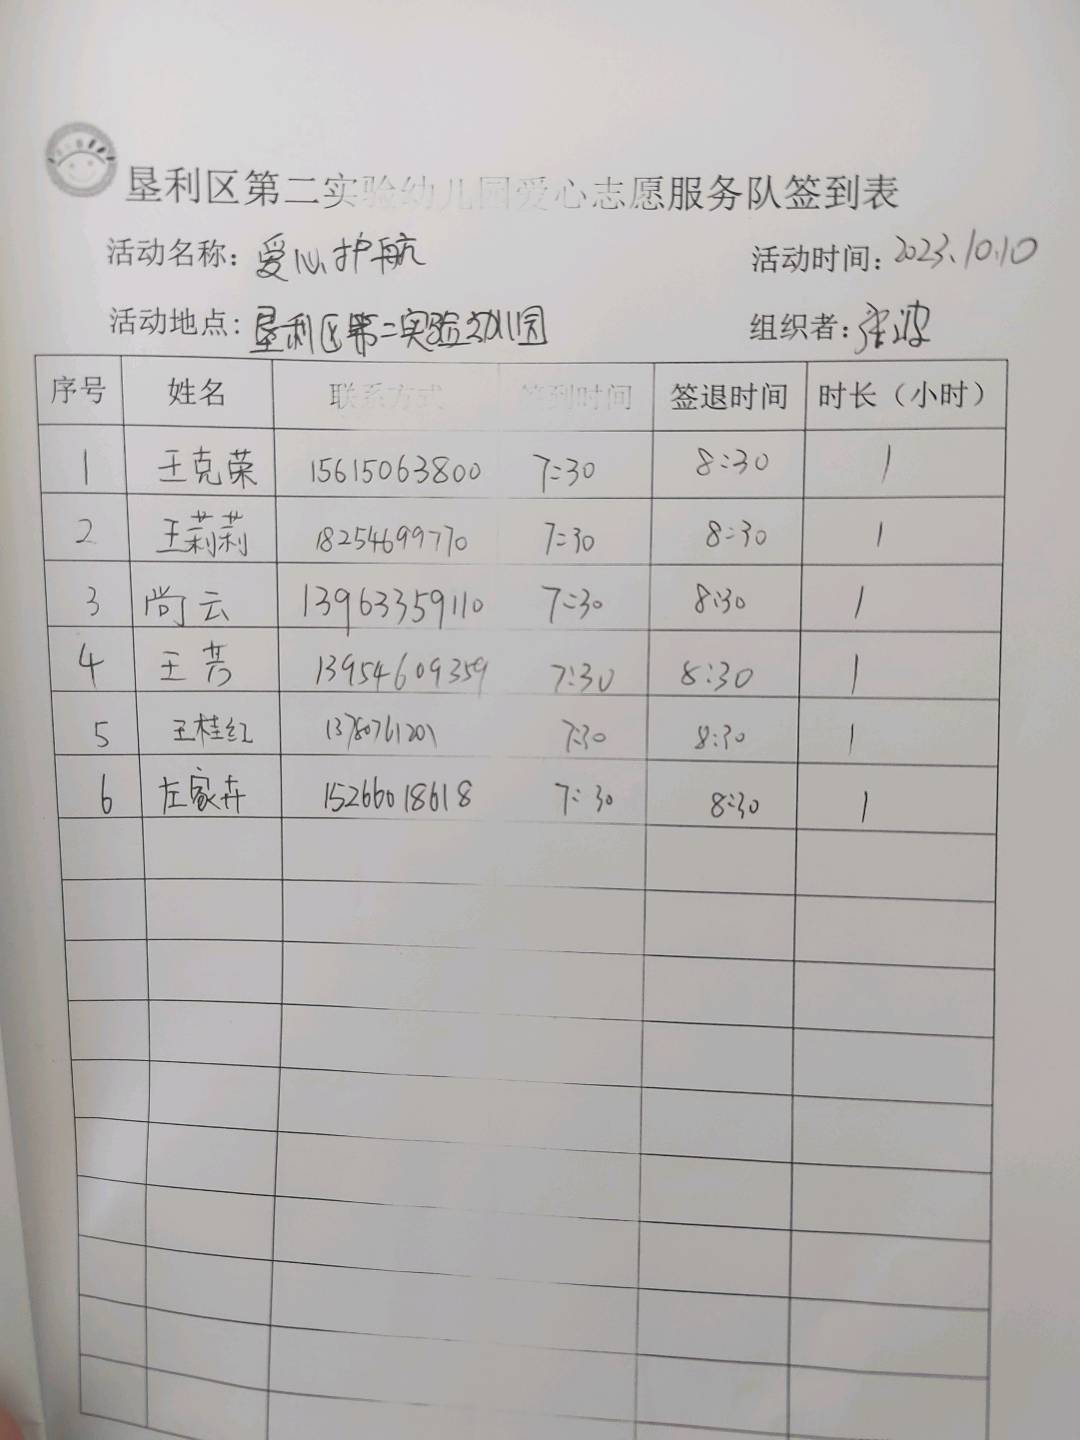 垦利区第二实验幼儿园爱心志愿服务队签到表
活动名称：爱心护航 活动时间：2023.10.10
活动地点：垦利区第二实验幼儿园 组织者：张波
序号 姓名 联系方式 签到时间 签退时间 时长（小时）
1 王克荣 15615063800 7:30 8:30 1
2 王莉莉 18254699770 7:30 8:30 1
3 尚云 13963359110 7:30 8:30 1
4 王芳 13954609359 7:30 8:30 1
5 王桂红 7:30 8:30 1
6 左家卉 15266018618 7:30 8:30 1